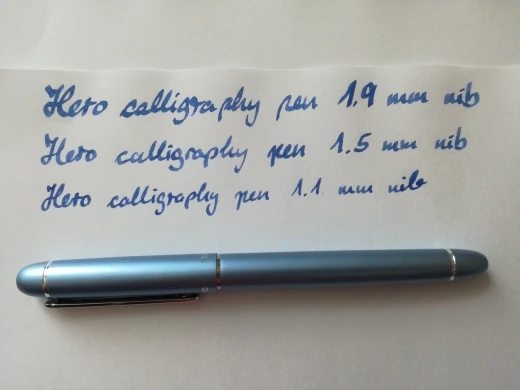 Hero calligraphy pen 1.9 mm nib
Hero calligraphy pen 1.5 mm nib
Hero calligraphy pen 1.1 mm nib